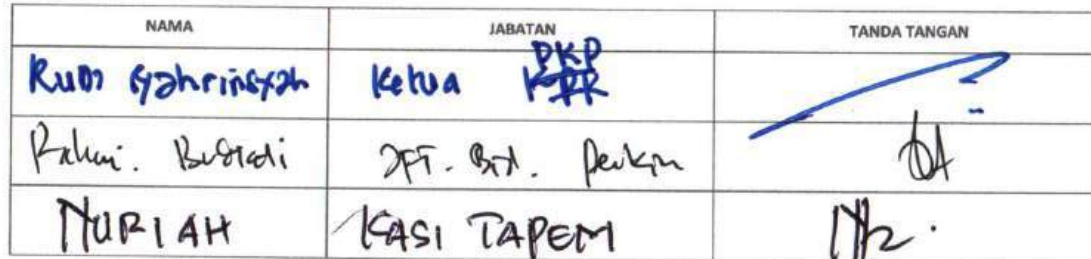 NAMA JABATAN TANDA TANGAN
Rudi Syahrinsyah Ketua PKP
Bustadi JFT. Bid. Perkim
NURIAH KASI TAPEM